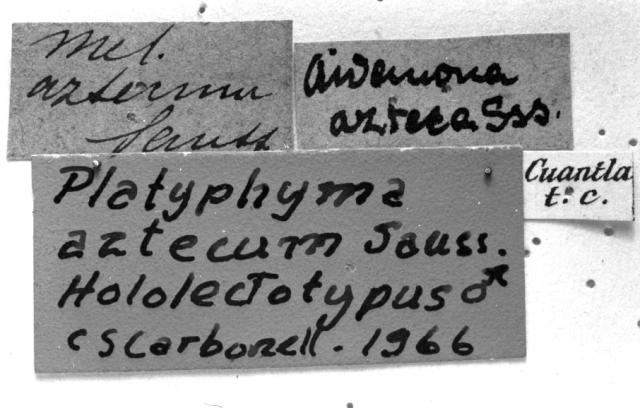 Mel.
aztecum
Sauss
Aidemona
azteca Sss.
Platyphyma
aztecum Sauss.
Hololectotypus ♂
CSCarbonell. 1966
Cuantla
t. c.